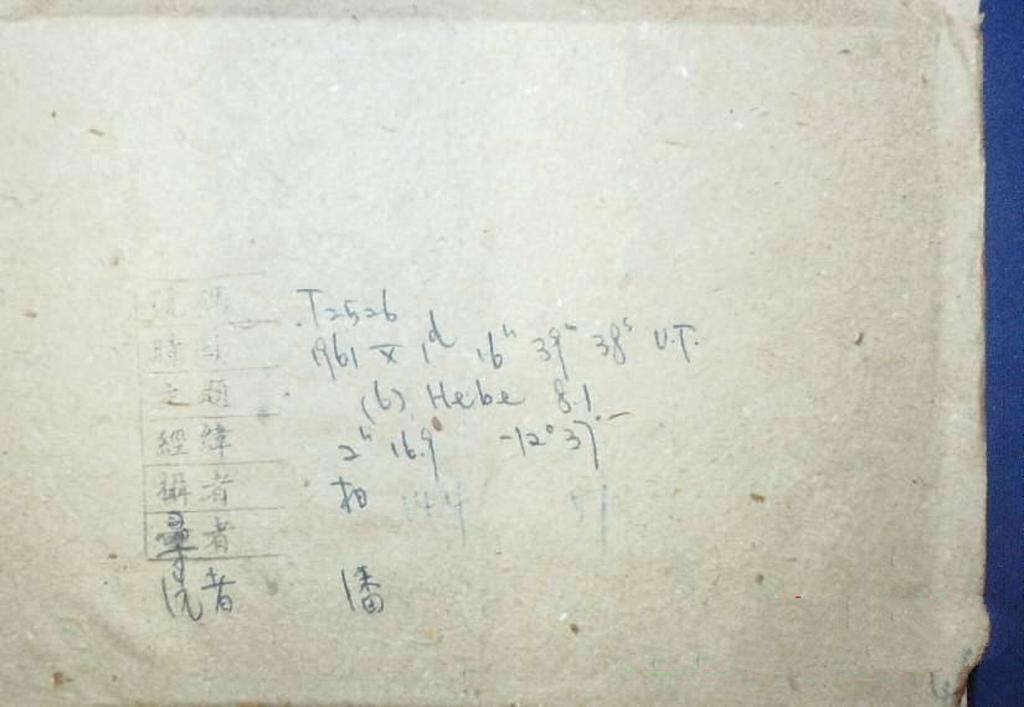 號碼 T2526
時刻 1961 X 1d 16h 39m 38s U.T.
之題 (6) Hebe 8.1
經緯 2h 16.9 -12° 37
攝者 柏 144 51
量者
者 潘